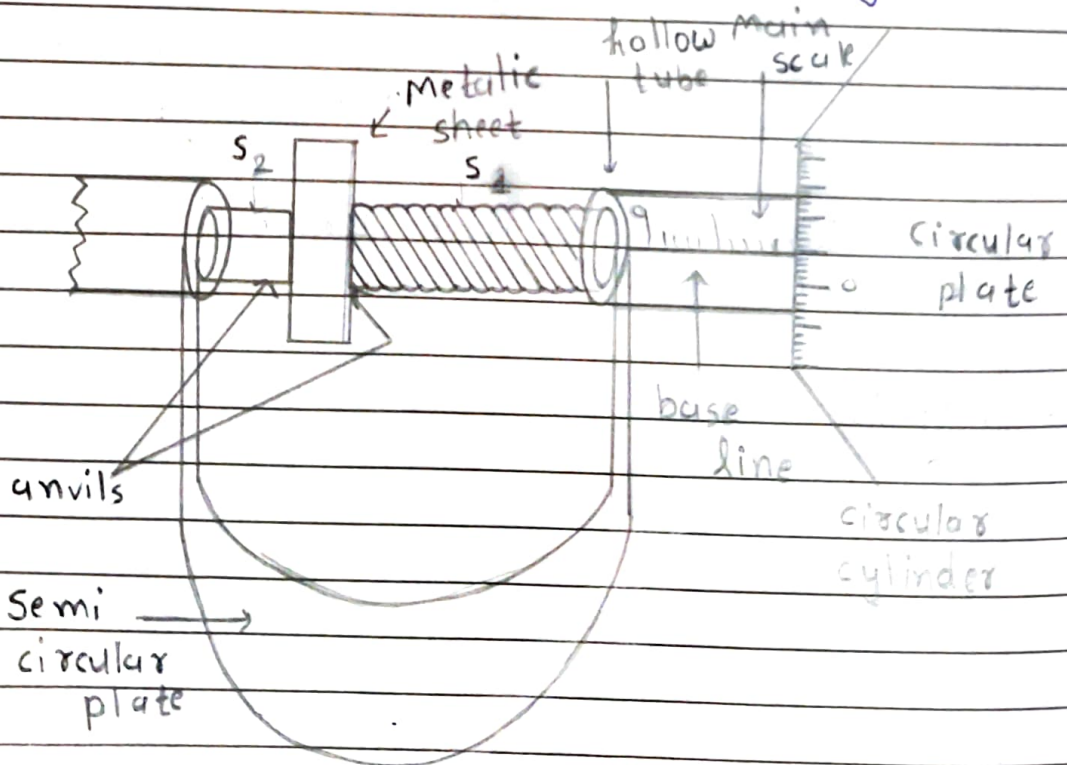 hollow
tube
Main
scale
Metalic
sheet
S2
S1
9
0
Circular
plate
base
line
anvils
circular
cylinder
Semi
circular
plate